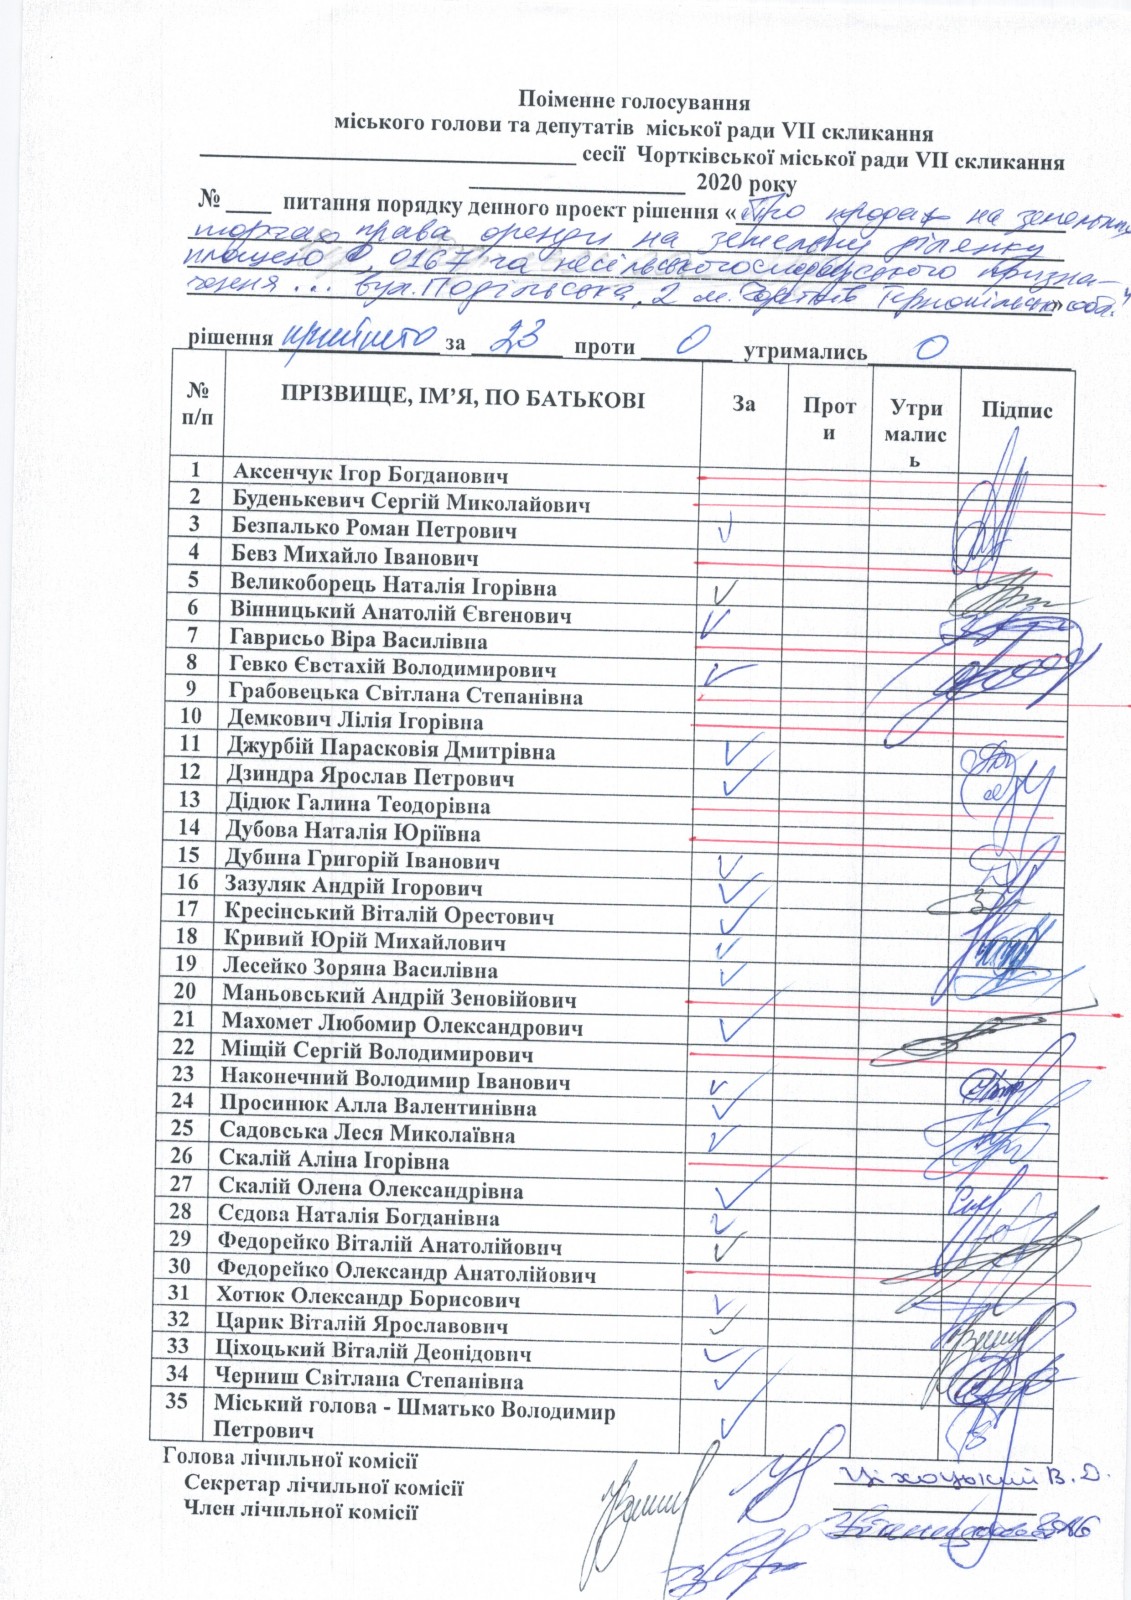 Поіменне голосування
міського голови та депутатів міської ради VII скликання
сесії Чортківської міської ради VII скликання
2020 року
№ ____ питання порядку денного проект рішення «Про продаж на земельних
торгах права оренди на земельну ділянку
площею 0,0167 га несільськогосподарського призна-
чення ... вул. Подільська, 2 м. Чортків Тернопільської обл.»
рішення прийнято за 23 проти 0 утримались 0
№ п/п ПРІЗВИЩЕ, ІМ’Я, ПО БАТЬКОВІ За Проти Утрималис ь Підпис
1 Аксенчук Ігор Богданович
2 Буденькевич Сергій Миколайович
3 Безпалько Роман Петрович
4 Бевз Михайло Іванович
5 Великоборець Наталія Ігорівна
6 Вінницький Анатолій Євгенович
7 Гаврисьо Віра Василівна
8 Гевко Євстахій Володимирович
9 Грабовецька Світлана Степанівна
10 Демкович Лілія Ігорівна
11 Джурбій Парасковія Дмитрівна
12 Дзиндра Ярослав Петрович
13 Дідюк Галина Теодорівна
14 Дубова Наталія Юріївна
15 Дубина Григорій Іванович
16 Зазуляк Андрій Ігорович
17 Кресінський Віталій Орестович
18 Кривий Юрій Михайлович
19 Лесейко Зоряна Василівна
20 Маньовський Андрій Зеновійович
21 Махомет Любомир Олександрович
22 Міщій Сергій Володимирович
23 Наконечний Володимир Іванович
24 Просинюк Алла Валентинівна
25 Садовська Леся Миколаївна
26 Скалій Аліна Ігорівна
27 Скалій Олена Олександрівна
28 Сєдова Наталія Богданівна
29 Федорейко Віталій Анатолійович
30 Федорейко Олександр Анатолійович
31 Хотюк Олександр Борисович
32 Царик Віталій Ярославович
33 Ціхоцький Віталій Деонідович
34 Черниш Світлана Степанівна
35 Міський голова - Шматько Володимир
Петрович
Голова лічильної комісії Ціхоцький В. Д.
Секретар лічильної комісії
Член лічильної комісії